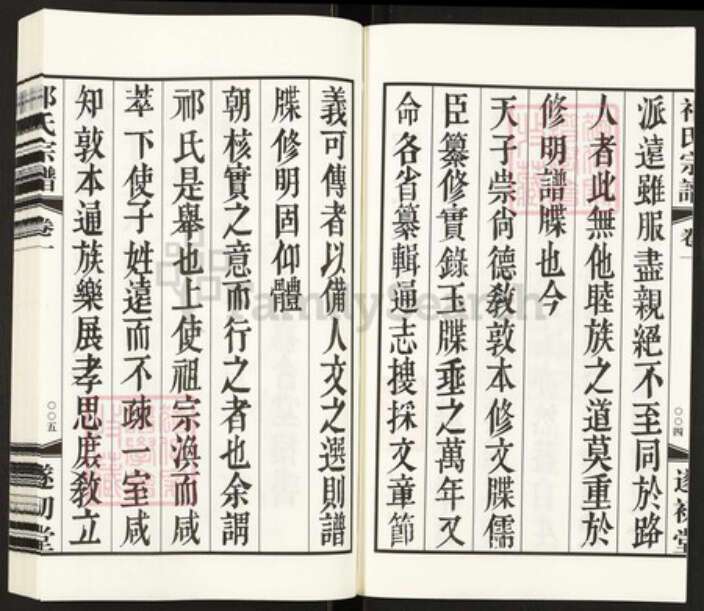 祁氏宗譜 卷一 〇〇四 遂初堂
派遠雖服盡親絕不至同於路
人者此無他睦族之道莫重於
修明譜牒也今
天子崇尚德敎敦本修文牒儒
臣纂修實錄玉牒垂之萬年又
命各省纂輯通志搜採文童節
義可傳者以備人文之選則譜
牒修明固仰體
朝核實之意而行之者也余謂
祁氏是舉也上使祖宗渙而咸
萃下使子姓遠而不疎一室咸
知敦本通族樂展孝思庶敎立
祁氏宗譜 卷一 〇〇五 遂初堂
FamilySearch